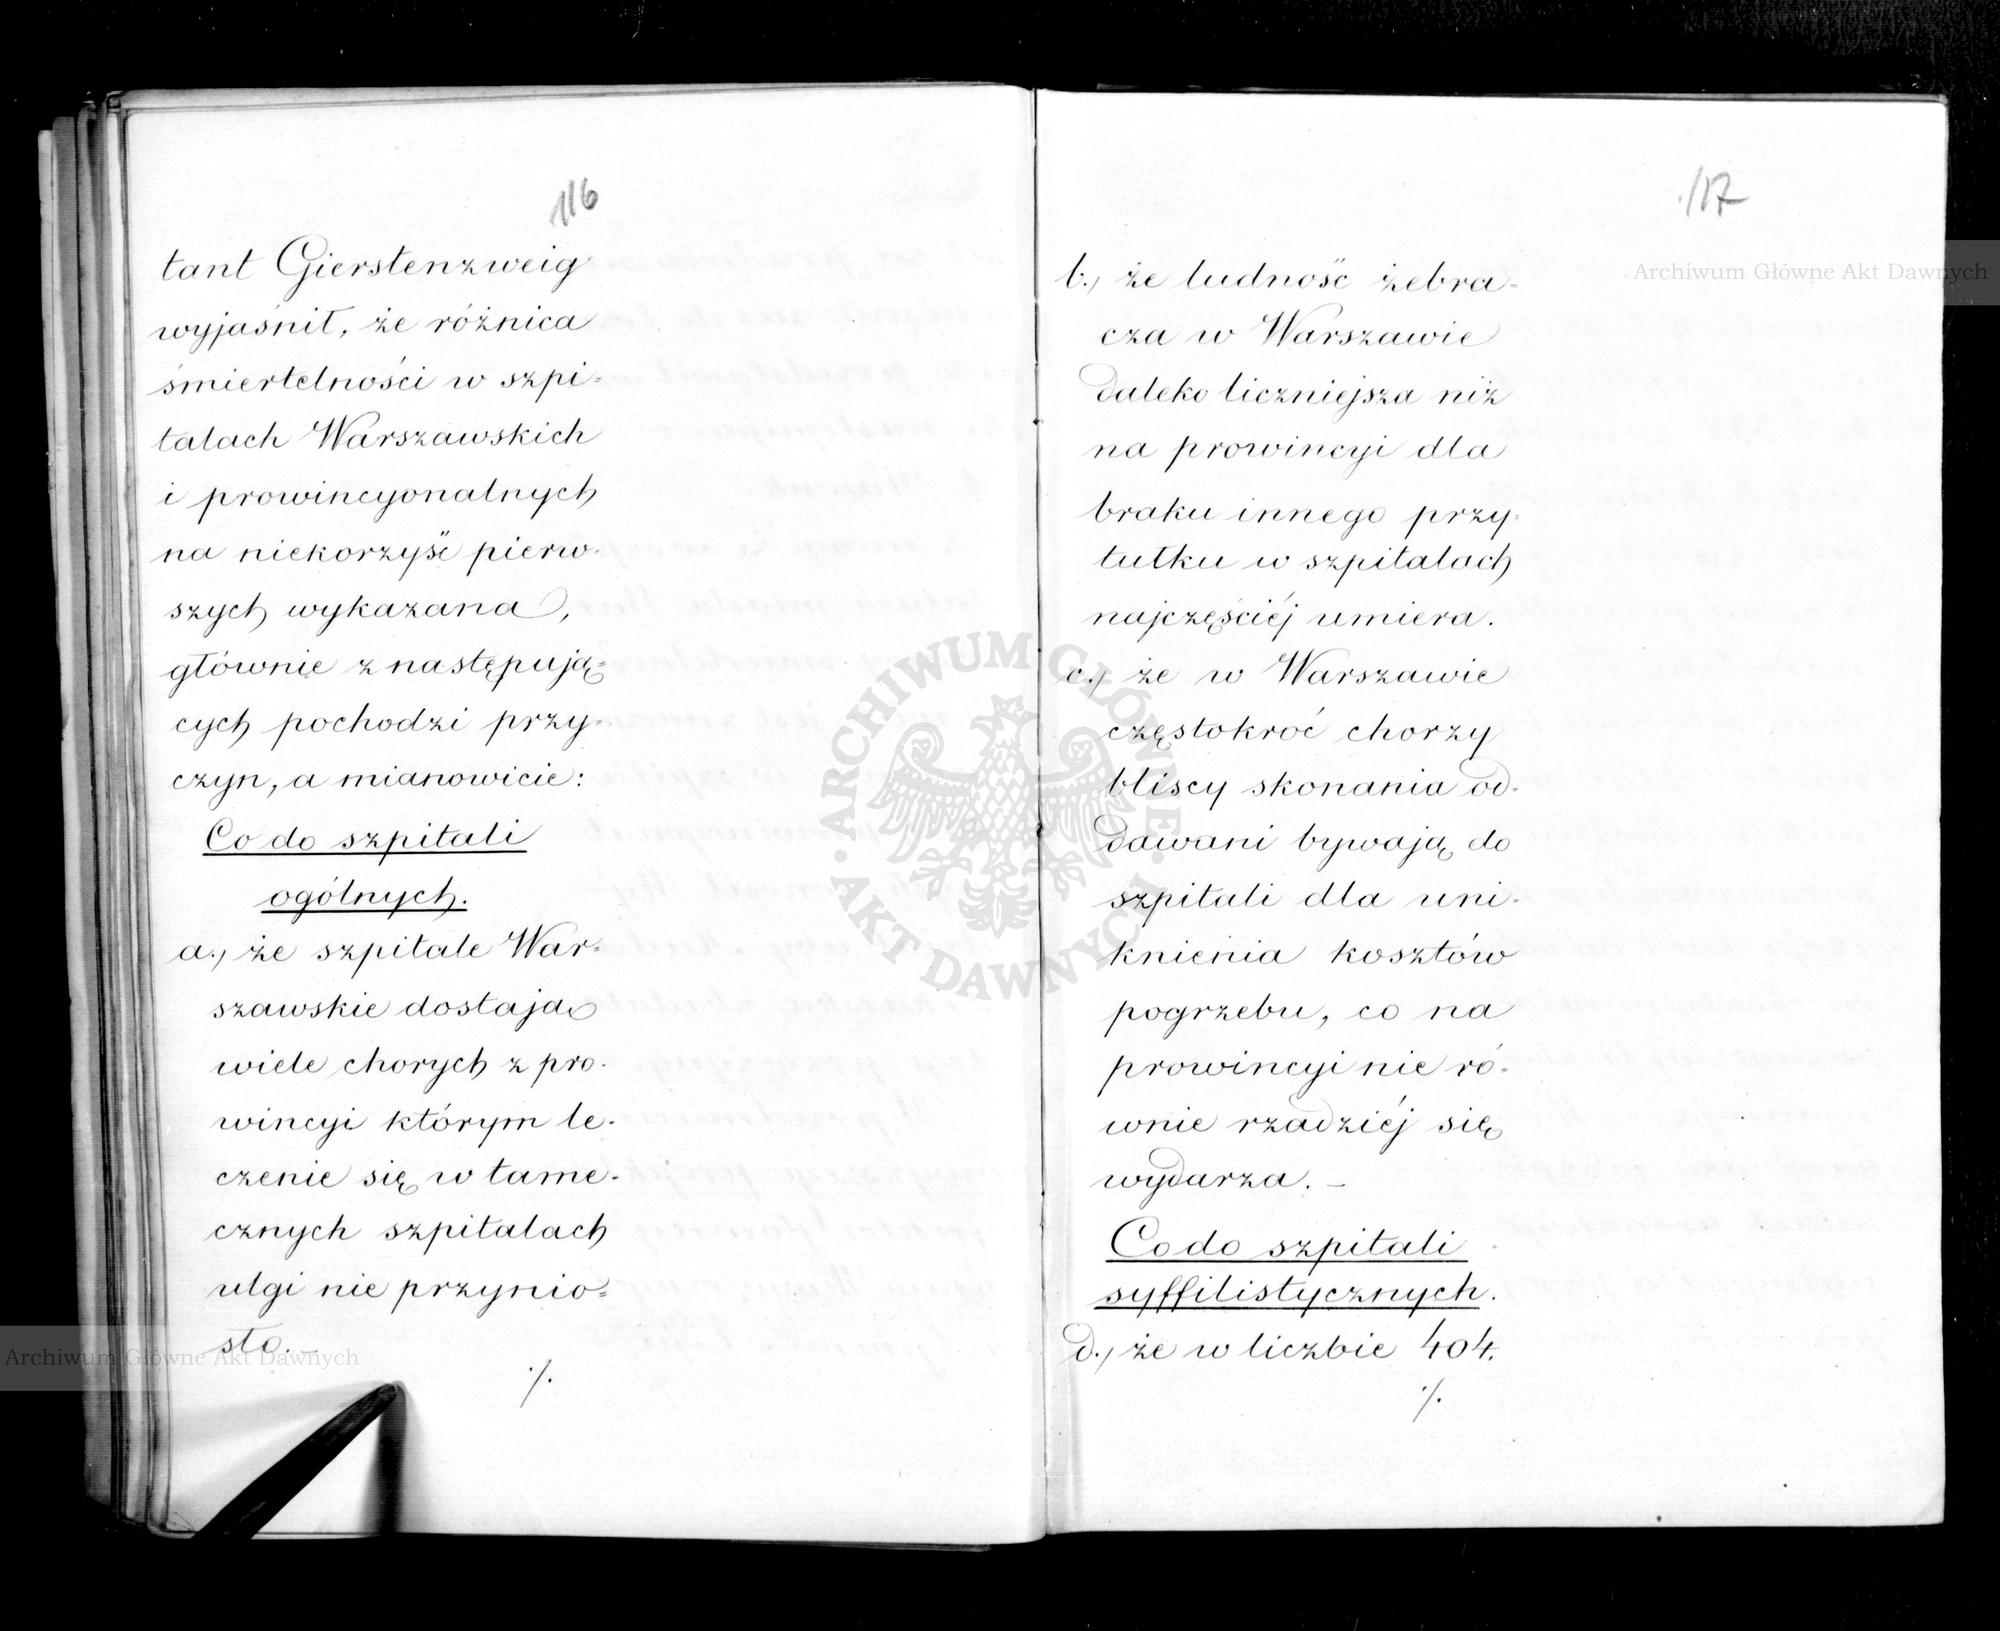 116
tant Gierstenzweig
wyjaśnił, że różnica
śmiertelności w szpi-
talach Warszawskich
i prowincyonalnych
na niekorzyść pierw-
szych wykazana,
głównie z następują-
cych pochodzi przy-
czyn, a mianowicie:
Co do szpitali
ogólnych.
a., że szpitale War-
szawskie dostają
wiele chorych z pro-
wincyi którym le-
czenie się w tame-
cznych szpitalach
ulgi nie przynio-
sło. –
·/.
117
b., że ludność żebra-
cza w Warszawie
daleko liczniejsza niż
na prowincyi dla
braku innego przy-
tułku w szpitalach
najczęściéj umiera.
c., że w Warszawie
częstokroć chorzy
bliscy skonania od-
dawani bywają do
szpitali dla uni-
knienia kosztów
pogrzebu, co na
prowincyi nie ró-
wnie rzadziéj się
wydarza. –
Co do szpitali
syffilistycznych.
d., że w liczbie 404.
·/.
Archiwum Główne Akt Dawnych
ARCHIWUM GŁÓWNE · AKT DAWNYCH ·
Archiwum Główne Akt Dawnych